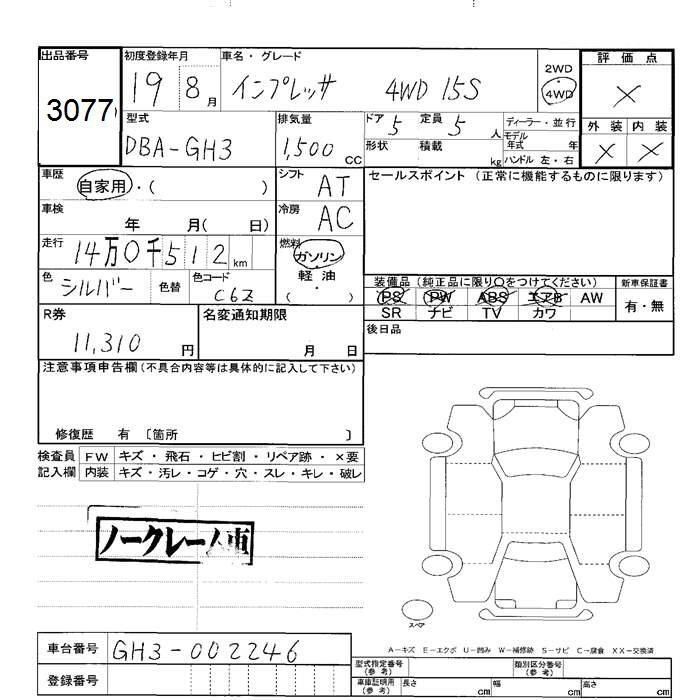 出品番号
3077
初度登録年月
19 8月
車名・グレード
インプレッサ 4WD 15S
2WD
4WD
評価点
×
外装 内装
× ×
型式
DBA-GH3
排気量
1,500 CC
ドア 5
定員 5人
形状
積載 kg
ディーラー・並行
モデル年式 年
ハンドル 左・右
車歴
自家用・( )
シフト
AT
セールスポイント (正常に機能するものに限ります)
車検
年 月( 日)
冷房
AC
走行
14万0千512km
燃料
ガソリン
軽・油
( )
色
シルバー
色替
色コード
C6Z
装備品(純正品に限り〇をつけてください)
PS PW ABS エアB AW
SR ナビ TV カワ
新車保証書
有・無
R券
11,310 円
名変通知期限
月 日
後日品
注意事項申告欄(不具合内容等は具体的に記入して下さい)
修復歴 有 〔箇所 〕
検査員記入欄
FW キズ・飛石・ヒビ割・リペア跡・×要
内装 キズ・汚レ・コゲ・穴・スレ・キレ・破レ
ノークレーム車
スペア
A-キズ E-エクボ U-凹み W-補修跡 S-サビ C-腐食 XX-交換済
車台番号
GH3-002246
登録番号
型式指定番号(参考)
類別区分番号(参考)
車庫証明用(参考)
長さ cm 幅 cm 高さ cm